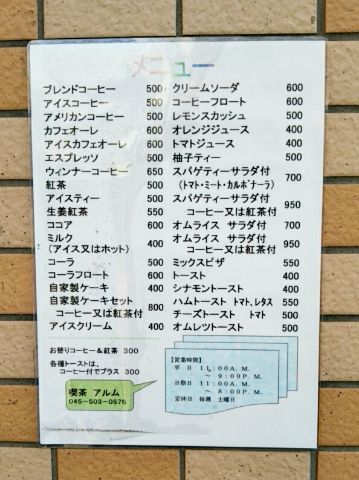 メニュー
ブレンドコーヒー 500
アイスコーヒー 500
アメリカンコーヒー 500
カフェオーレ 600
アイスカフェオーレ 600
エスプレッソ 500
ウィンナーコーヒー 650
紅茶 500
アイスティー 500
生姜紅茶 550
ココア 600
ミルク
(アイス又はホット) 400
コーラ 500
コーラフロート 600
自家製ケーキ 400
自家製ケーキセット
コーヒー又は紅茶付 800
アイスクリーム 400
クリームソーダ 600
コーヒーフロート 600
レモンスカッシュ 500
オレンジジュース 400
トマトジュース 400
柚子ティー 500
スパゲティーサラダ付 700
(トマト・ミート・カルボナーラ)
スパゲティーサラダ付 950
コーヒー又は紅茶付
オムライス サラダ付 700
オムライス サラダ付 950
コーヒー又は紅茶付
ミックスピザ 550
トースト 400
シナモントースト 400
ハムトースト トマト,レタス 550
チーズトースト トマト 500
オムレツトースト 500
お替りコーヒー&紅茶 300
各種トーストは、
コーヒー付でプラス 300
喫茶 アルム
045-503-0575
【営業時間】
平 日 11:00A.M.
~ 9:00P.M.
日祭日 11:00A.M.
~ 8:00P.M.
定休日 毎週 土曜日